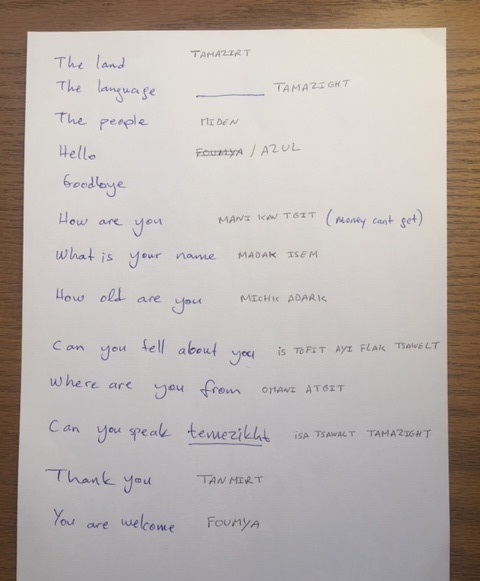 The land TAMAZIRT
The language ________ TAMAZIGHT
The people MIDEN
Hello FOUMYA / AZUL
Goodbye
How are you MANI KAW TGIT (money cant get)
What is your name MADAK ISEM
How old are you MICHK ADARK
Can you tell about you IS TOFIT AYI FLAK TSAWELT
Where are you from OMANI ATGIT
Can you speak temezikht ISA TSAWALT TAMAZIGHT
Thank you TANMIRT
You are welcome FOUMYA